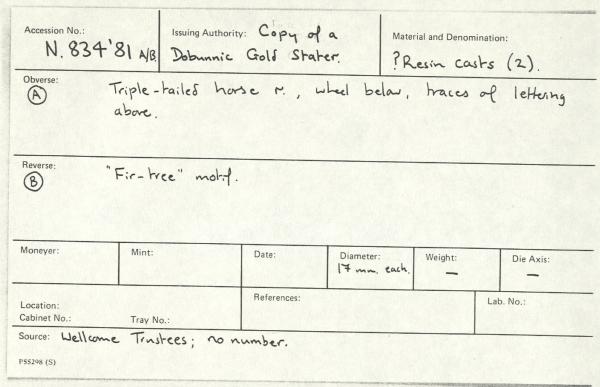 Accession No.: N. 834'81 A/B
Issuing Authority: Copy of a
Dobunnic Gold Stater.
Material and Denomination:
?Resin casts (2).
Obverse:
(A) Triple-tailed horse r., wheel below, traces of lettering
above.
Reverse:
(B) "Fir-tree" motif.
Moneyer:
Mint:
Date:
Diameter:
17 mm. each.
Weight:
—
Die Axis:
—
Location:
Cabinet No.:
Tray No.:
References:
Lab. No.:
Source: Wellcome Trustees; no number.
PSS298 (S)